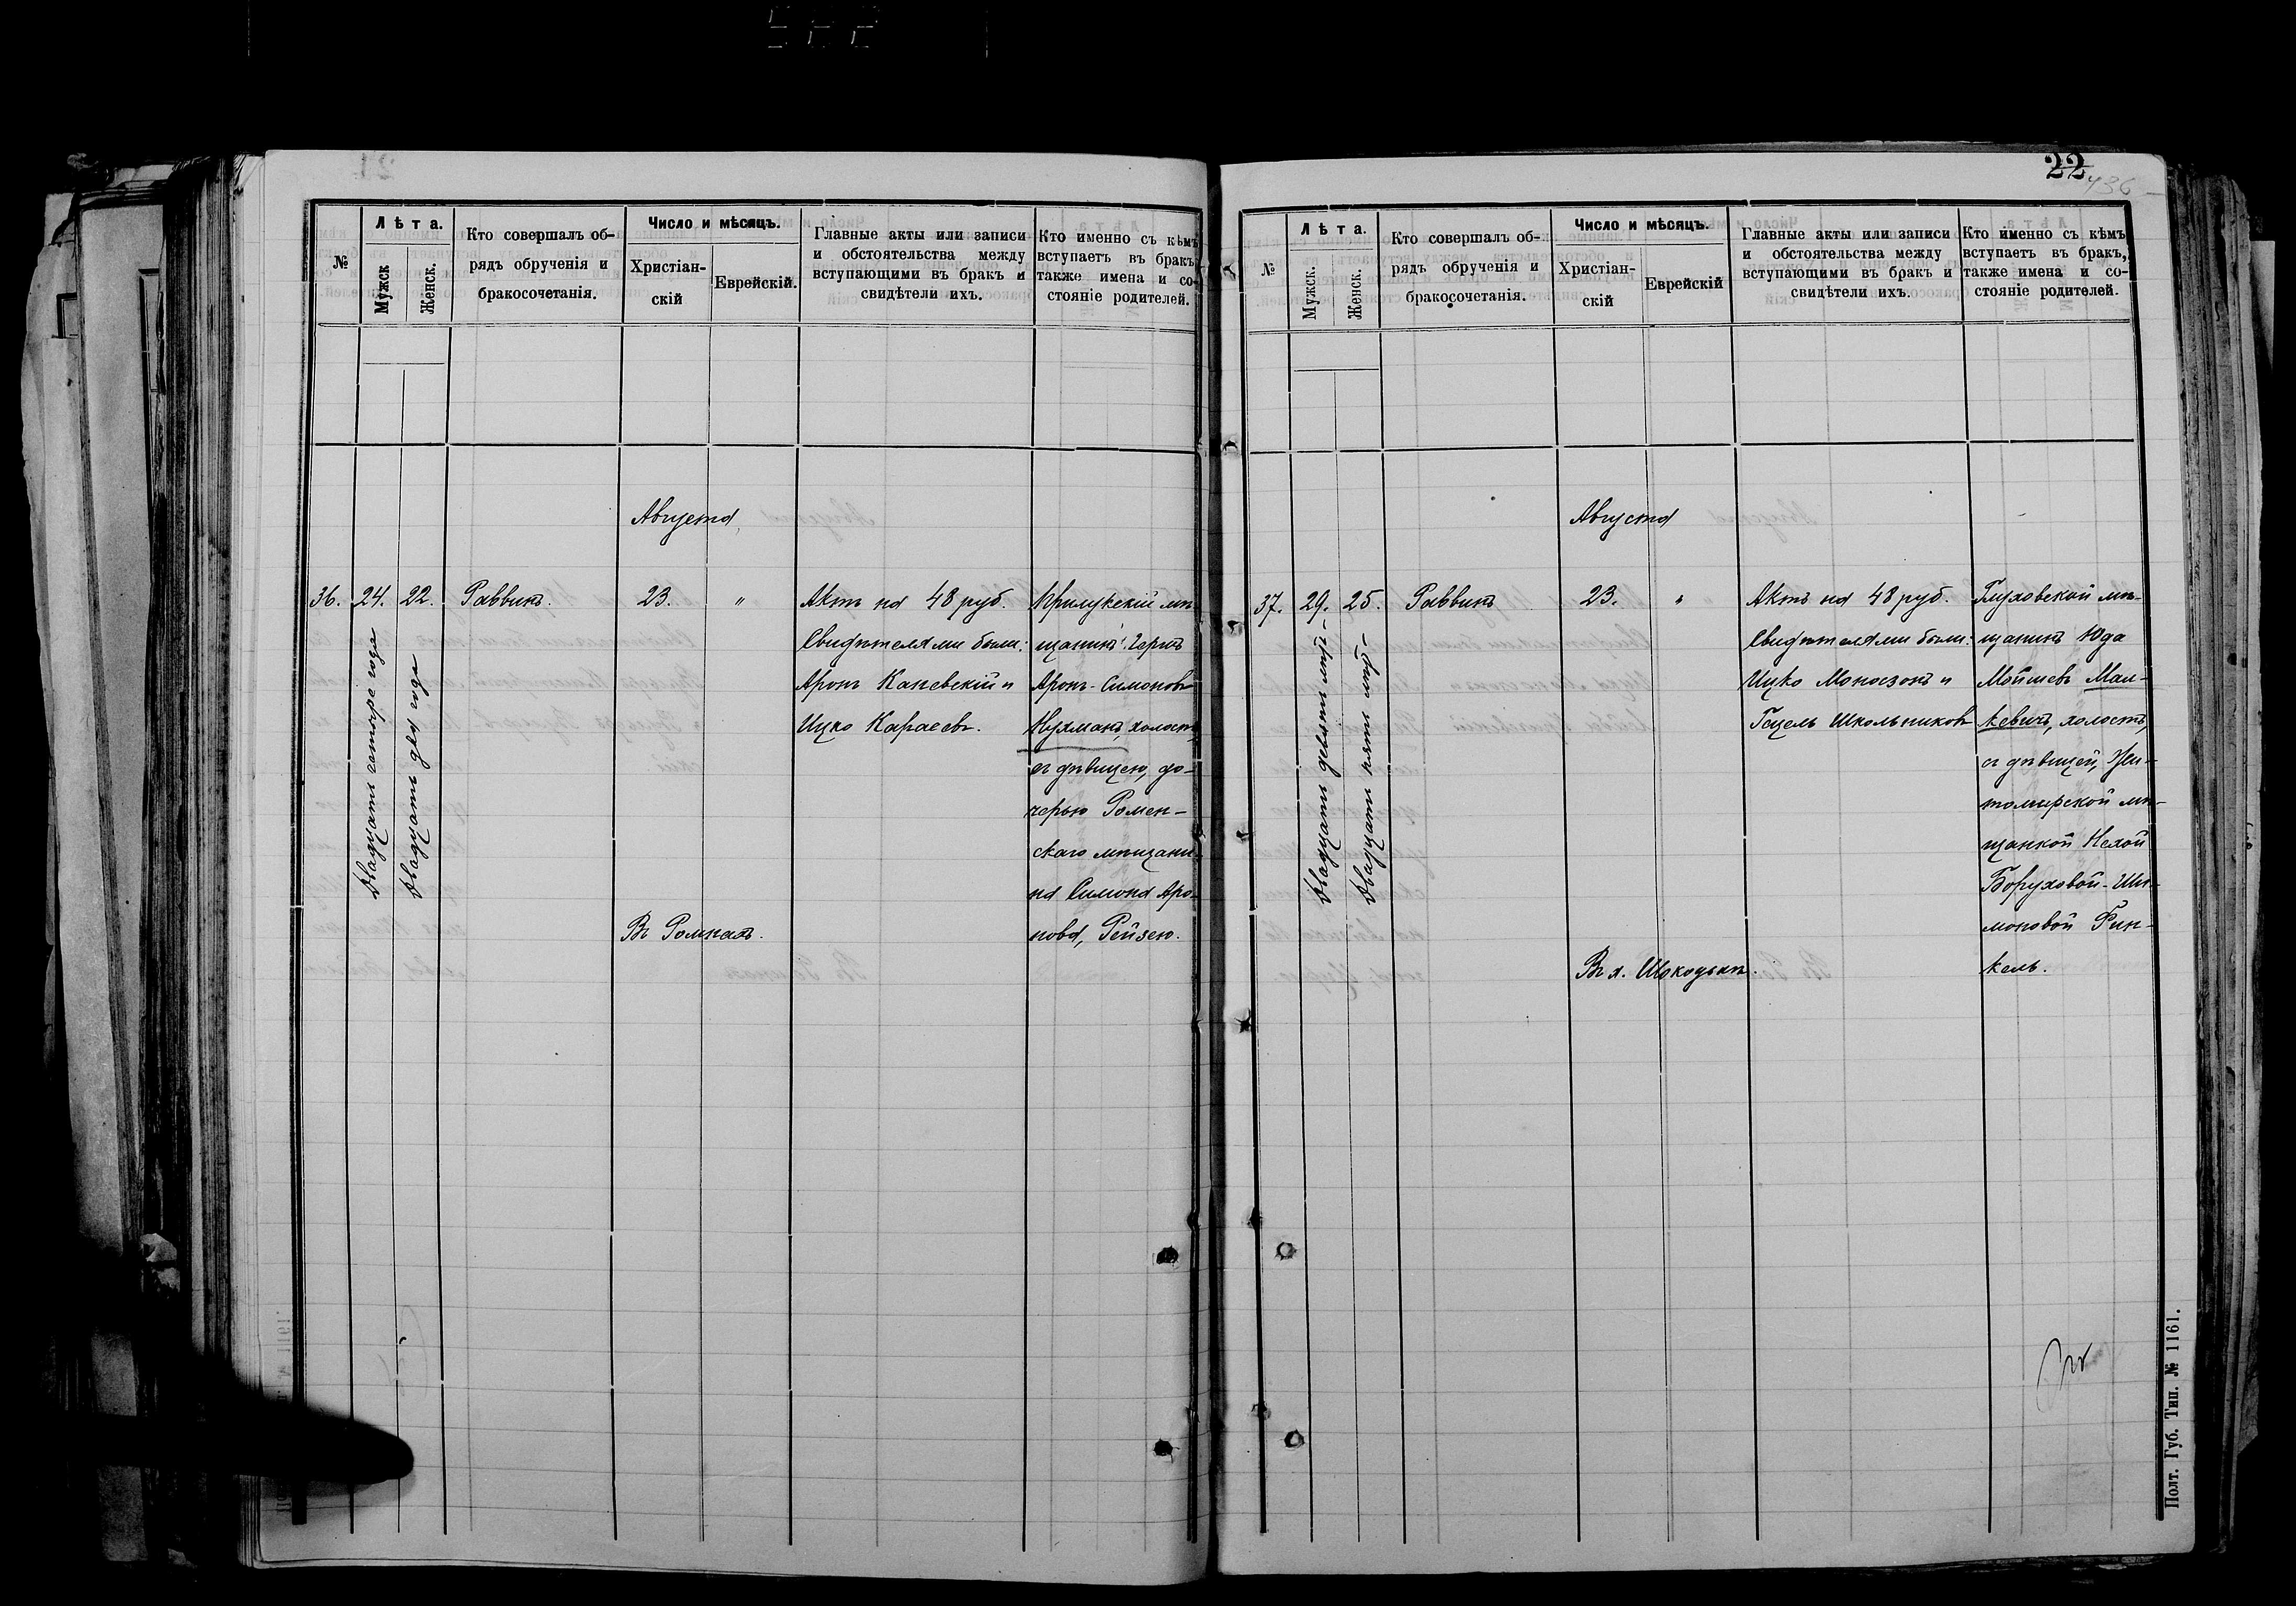 22
436
№
Лѣта.
Мужск
Женск.
Кто совершалъ об-
рядъ обрученія и
бракосочетанія.
Число и мѣсяцъ.
Христіан-
скій
Еврейскій.
Главные акты или записи
и обстоятельства между
вступающими въ бракъ и
свидѣтели ихъ.
Кто именно съ кѣмъ
вступаетъ въ бракъ,
также имена и со-
стояніе родителей.
Августа
36.
24.
22.
Двадцать четыре года
Двадцать два года
Раввинъ.
23.
"
Актъ на 48 руб.
Свидѣтелями были:
Аронъ Каневскій и
Ицко Караевъ.
Прилукскій мѣ-
щанинъ Герцъ
Аронъ-Симоновъ
Нухманъ, холостъ,
съ дѣвицею, до-
черью Ромен-
скаго мѣщани-
на Симона Аро-
нова, Рейзею.
Въ Ромнахъ.
№
Лѣта.
Мужск.
Женск.
Кто совершалъ об-
рядъ обрученія и
бракосочетанія.
Число и мѣсяцъ.
Христіан-
скій
Еврейскій
Главные акты или записи
и обстоятельства между
вступающими въ бракъ и
свидѣтели ихъ.
Кто именно съ кѣмъ
вступаетъ въ бракъ,
также имена и со-
стояніе родителей.
Августа
37.
29.
25.
Двадцать девять лѣтъ
Двадцать пять лѣтъ
Раввинъ
23.
"
Актъ на 48 руб.
Свидѣтелями были:
Ицко Моназонъ и
Гецель Школьниковъ
Глуховской мѣ-
щанинъ Юда
Мойшевъ Мал-
кевичъ, холостъ,
съ дѣвицей, Жи-
томирской мѣ-
щанкой Нехой
Боруховой-Ши-
моновой Фин-
кель.
Въ х. Шокодьки.
Полт. Губ. Тип. № 1161.